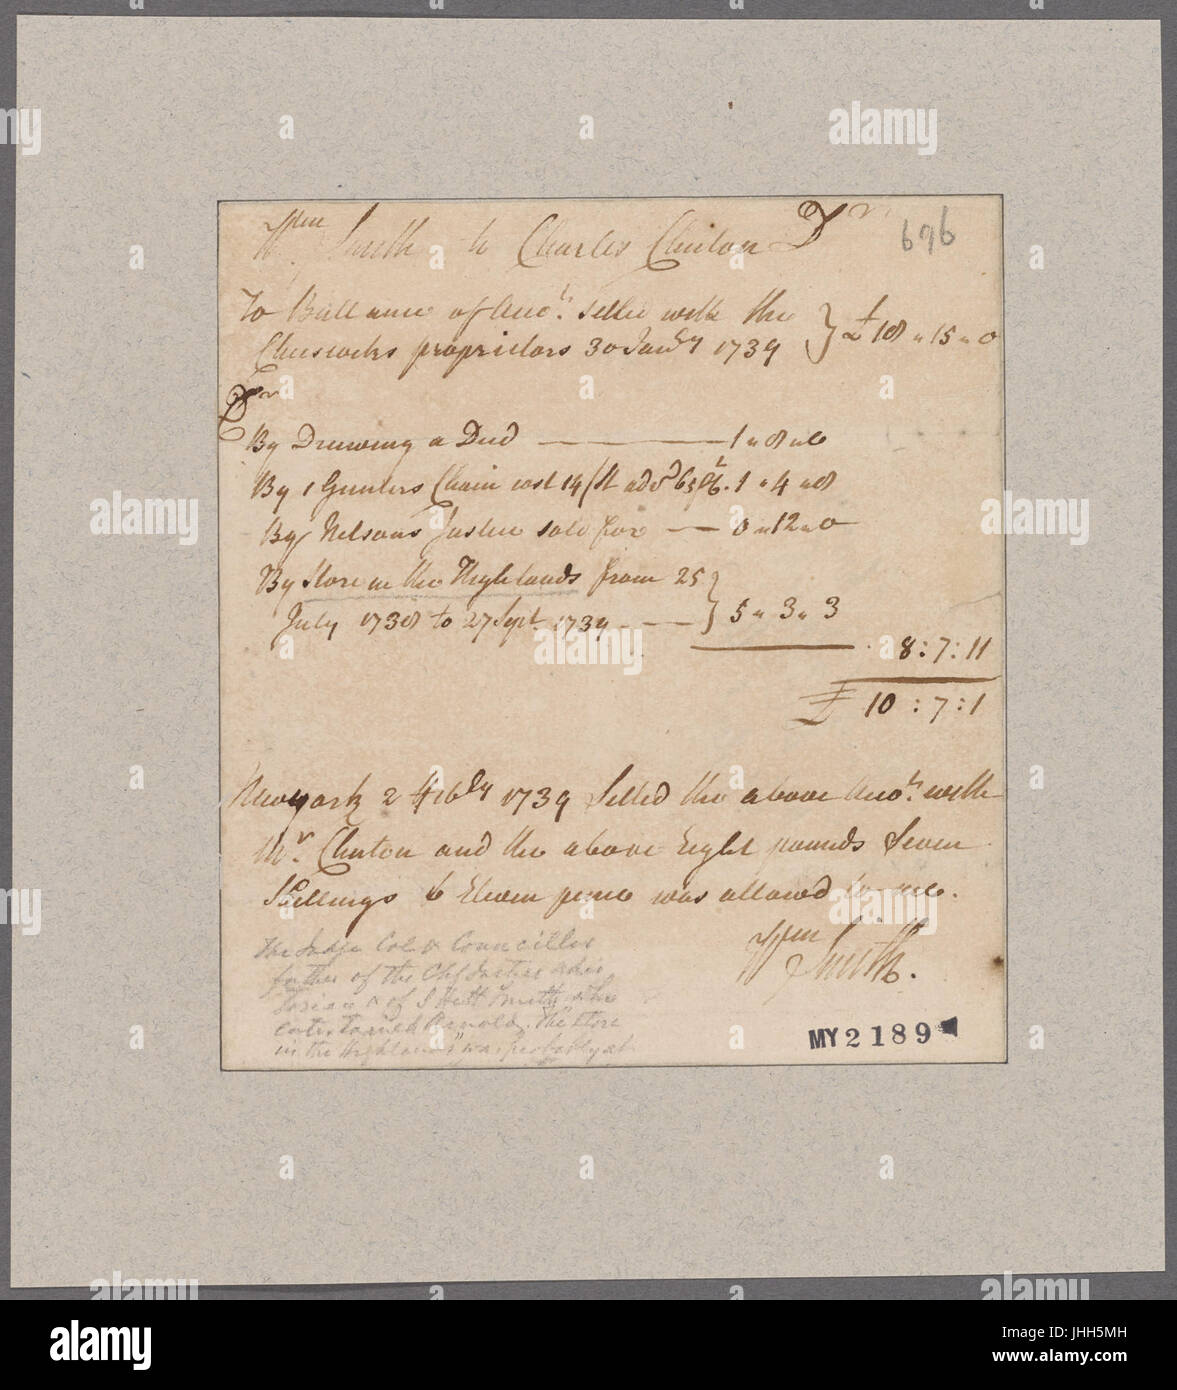 Wm Smith to Charles Clinton Dr
696
To Ballance of Acct. setled with the
Cheescocks proprietors 30 Janry 1739 } £ 18 " 15 " 0
Cr
By Drawing a Deed — 1 " 8 " 0
By 1 Gunters Chain cost 14/ St advd 65 pCt. 1 " 4 " 8
By Nelsons Justice sold for — 0 " 12 " 0
By Store in the Highlands from 25
July 1738 to 27 Sept. 1739 — } 5 " 3 " 3
8 : 7 : 11
£ 10 : 7 : 1
Newyork 2 Febry 1739 Setled the above Acct. with
Mr. Clinton and the above Eight pounds Seven
Shillings & Eleven pence was allowed to me.
Wm Smith.
The Judge Col & Councillor
father of the Chf Justice & his
& of J Hett Smith who
entertained Arnold. The "Store
in the Highlands" was probably at
MY 2 189
alamy
a
alamy
Image ID: JHH5MH
www.alamy.com